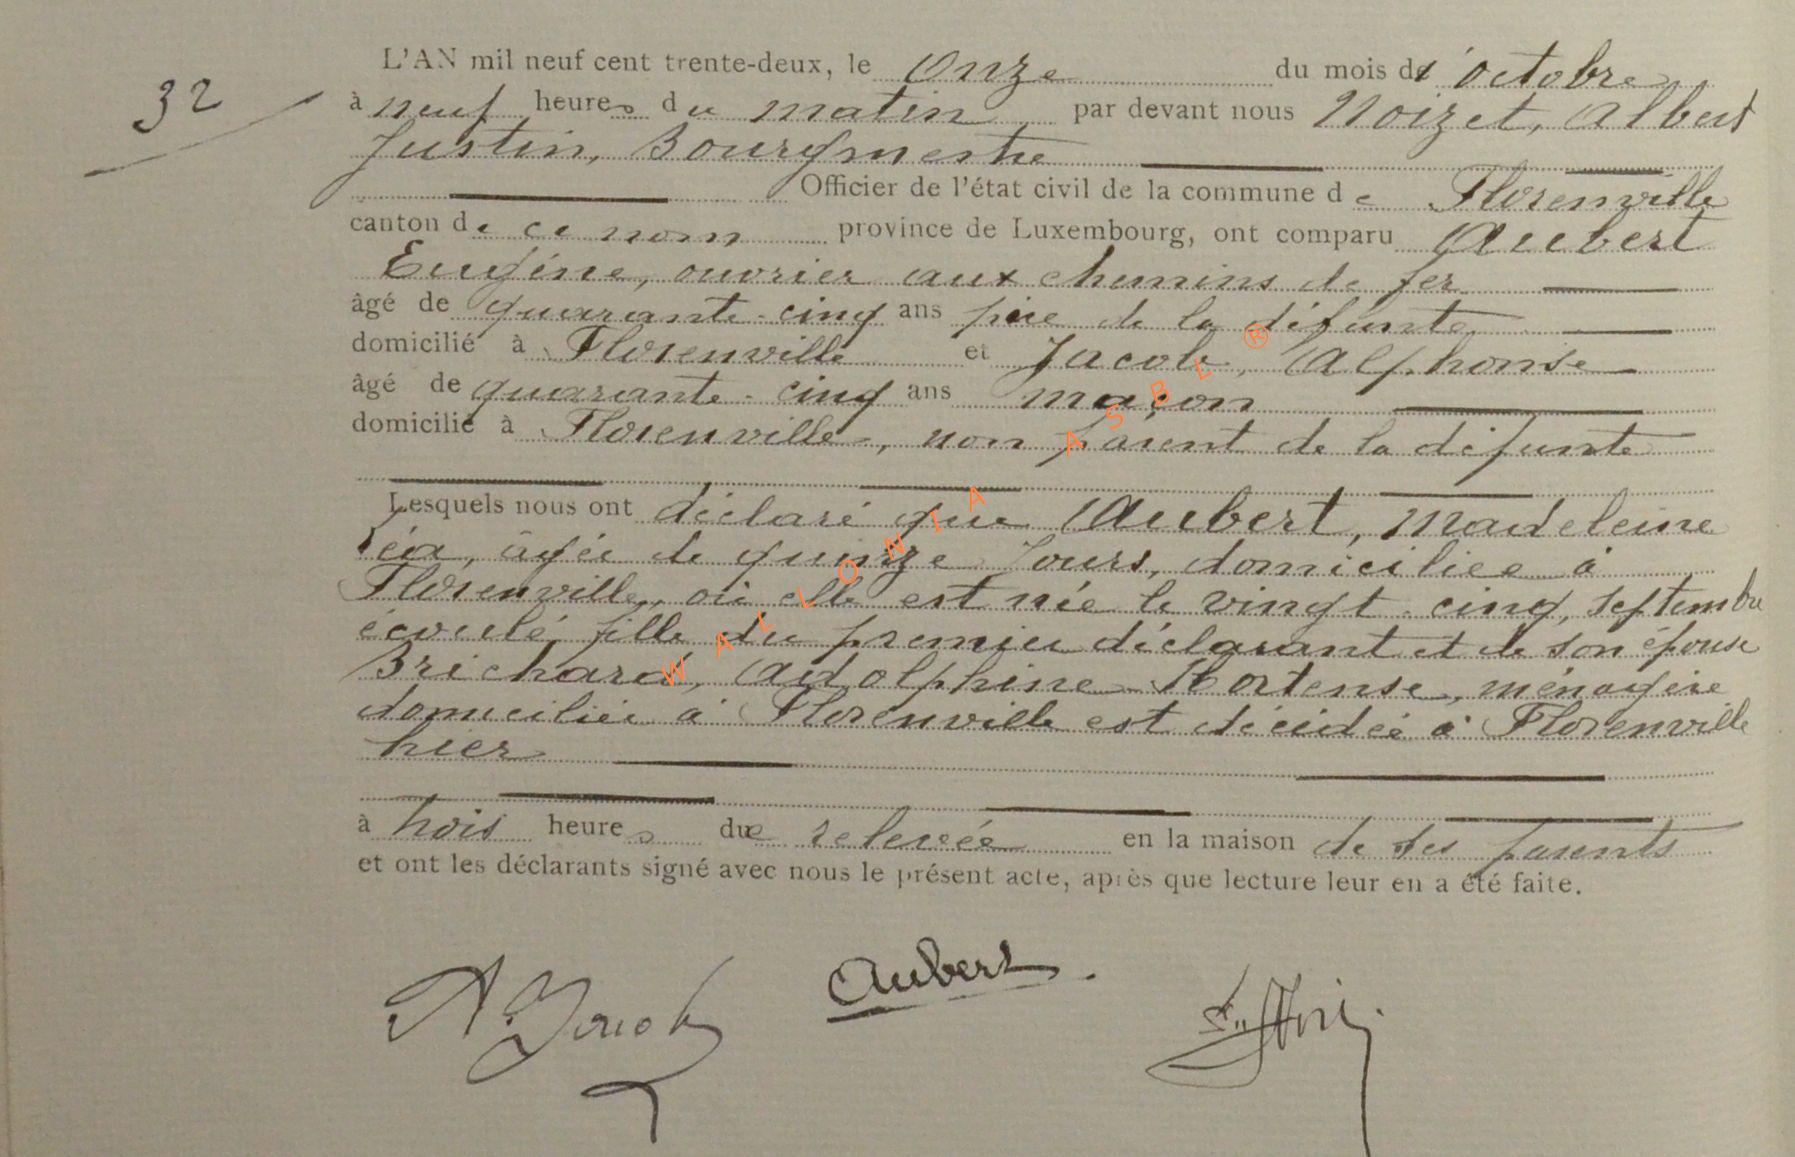 32
L'AN mil neuf cent trente-deux, le onze du mois d'octobre
à neuf heures du matin par devant nous Noizet, Albert
Justin, Bourgmestre
Officier de l'état civil de la commune de Florenville
canton de ce nom province de Luxembourg, ont comparu Aubert
Eugène, ouvrier aux chemins de fer
âgé de quarante-cinq ans père de la défunte
domicilié à Florenville et Jacob, Alphonse
âgé de quarante-cinq ans maçon
domicilié à Florenville, non parent de la défunte
Lesquels nous ont déclaré que Aubert, Madeleine
Léa, âgée de quinze jours, domiciliée à
Florenville, où elle est née le vingt-cinq septembre
écoulé, fille du premier déclarant et de son épouse
Brichard, Adolphine Hortense, ménagère
domiciliée à Florenville est décédée à Florenville
hier
à trois heures de relevée en la maison de ses parents
et ont les déclarants signé avec nous le présent acte, après que lecture leur en a été faite.
A. Jacob Aubert
WALLONIA ASBL ®